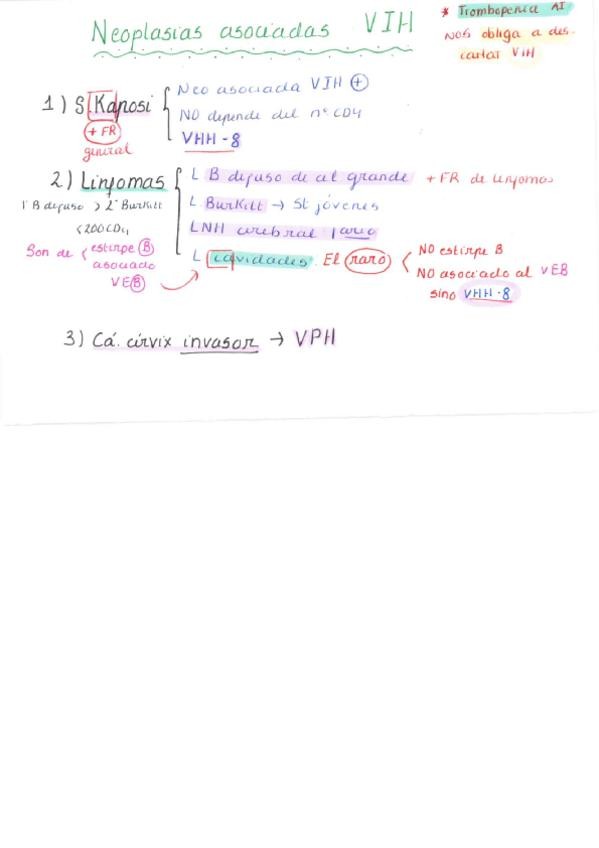 Neoplasias asociadas VIH
* Trombopenia AI
NOS obliga a des-
cartar VIH
1) S. Kaposi
+ FR
general
Neo asociada VIH +
NO depende del nº CD4
VHH-8
2) Linfomas
1º B difuso > 2º Burkitt
<200 CD4
Son de
estirpe B
asociado
VEB
L B difuso de cel grande + FR de linfomas
L Burkitt → St jóvenes
LNH cerebral 1ario
L cavidades. El raro
NO estirpe B
NO asociado al VEB
sino VHH-8
3) Cá. cérvix invasor → VPH